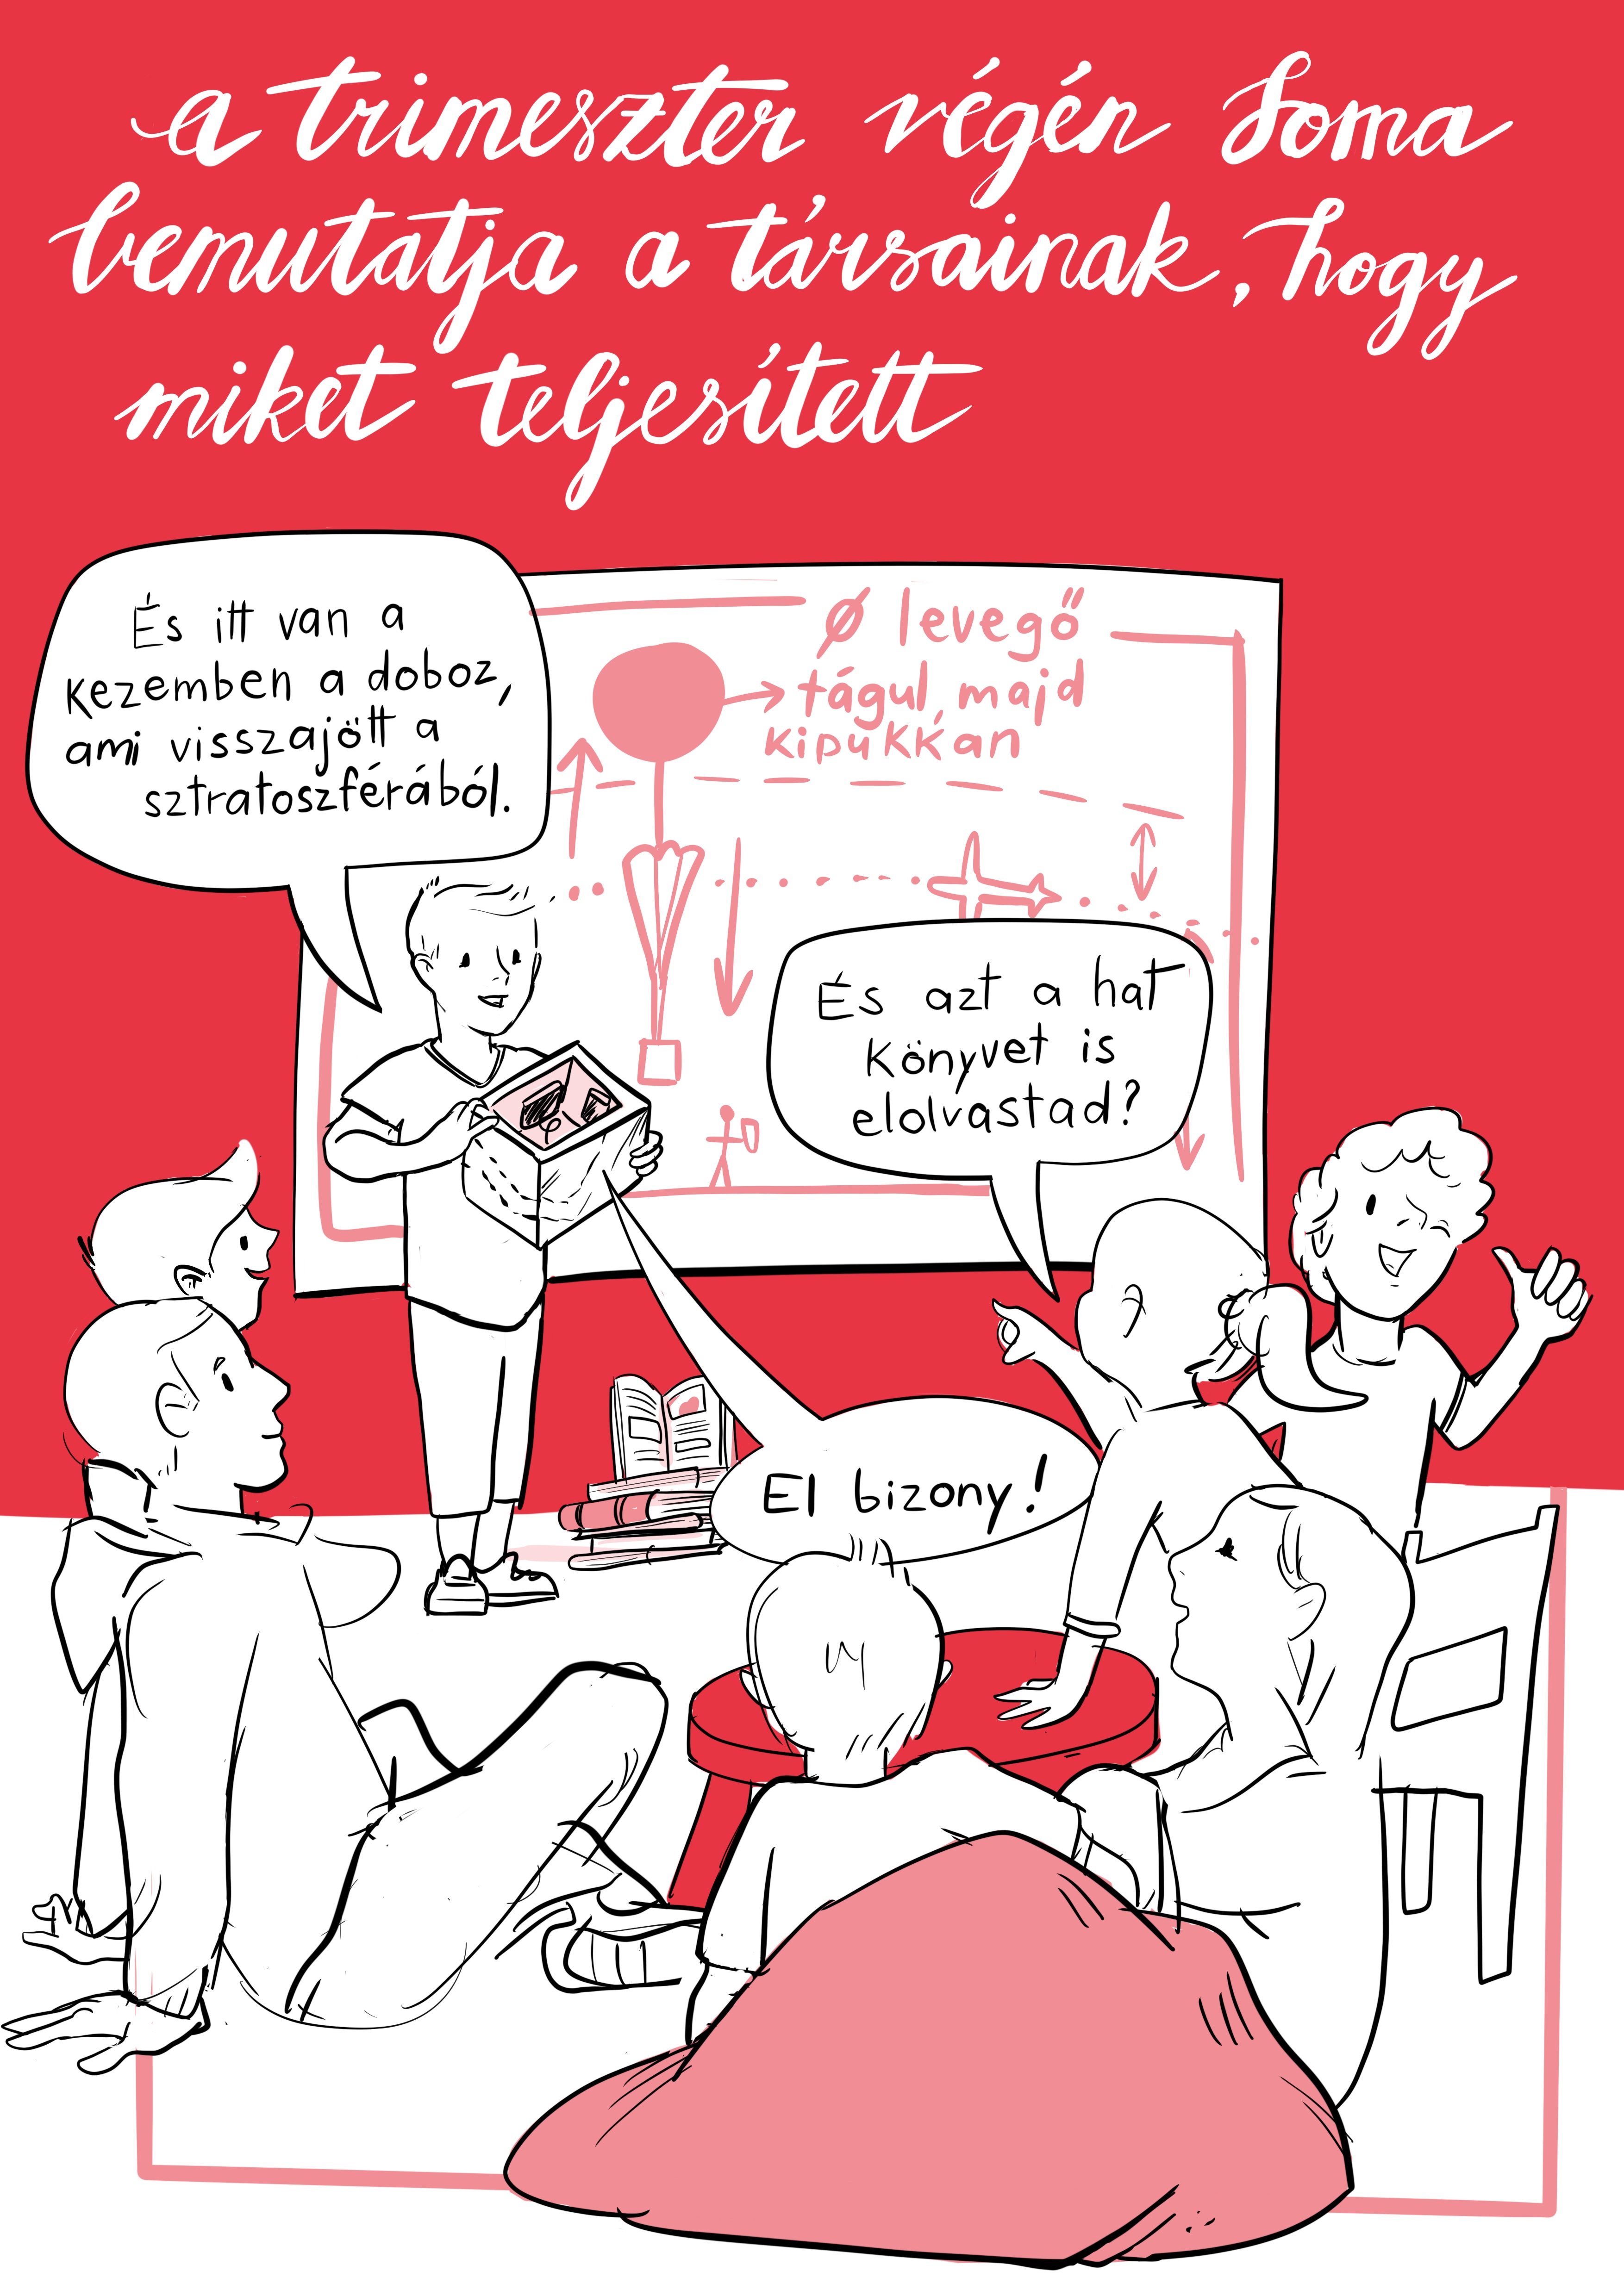 a trimeszter végén Soma
bemutatja a társainak, hogy
miket teljesített
És itt van a
kezemben a doboz,
ami visszajött a
sztratoszférából.
Ø levegő
tágul, majd
kipukkan
És azt a hat
könyvet is
elolvastad?
El bizony!